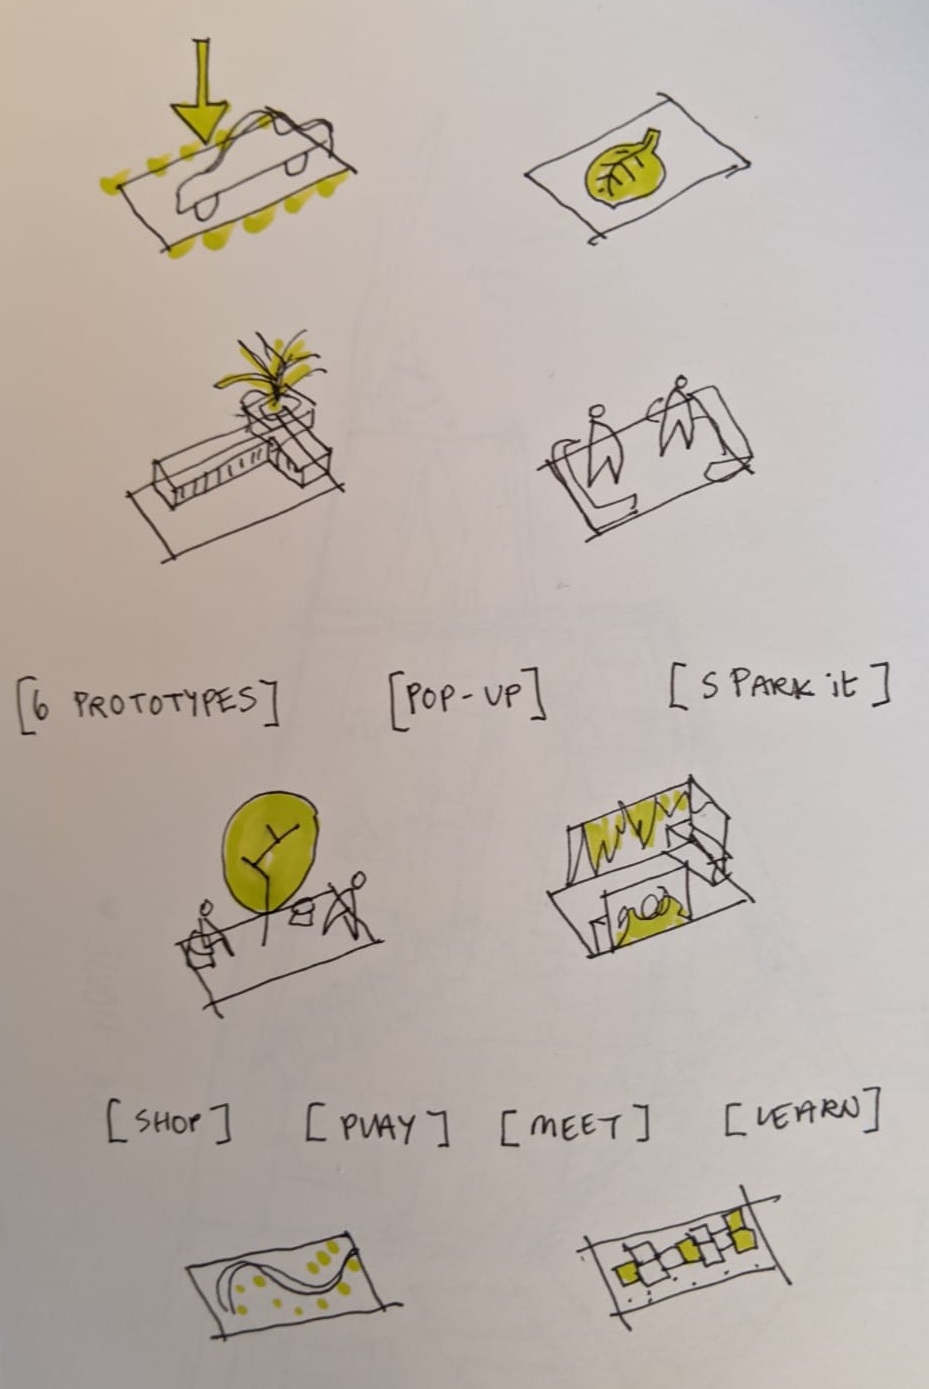 [6 PROTOTYPES] [POP-UP] [SPARK it]
[SHOP] [PLAY] [MEET] [LEARN]